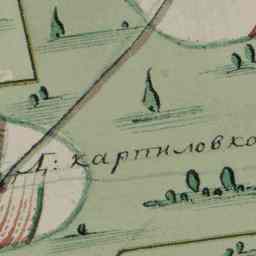 Д: карпиловка